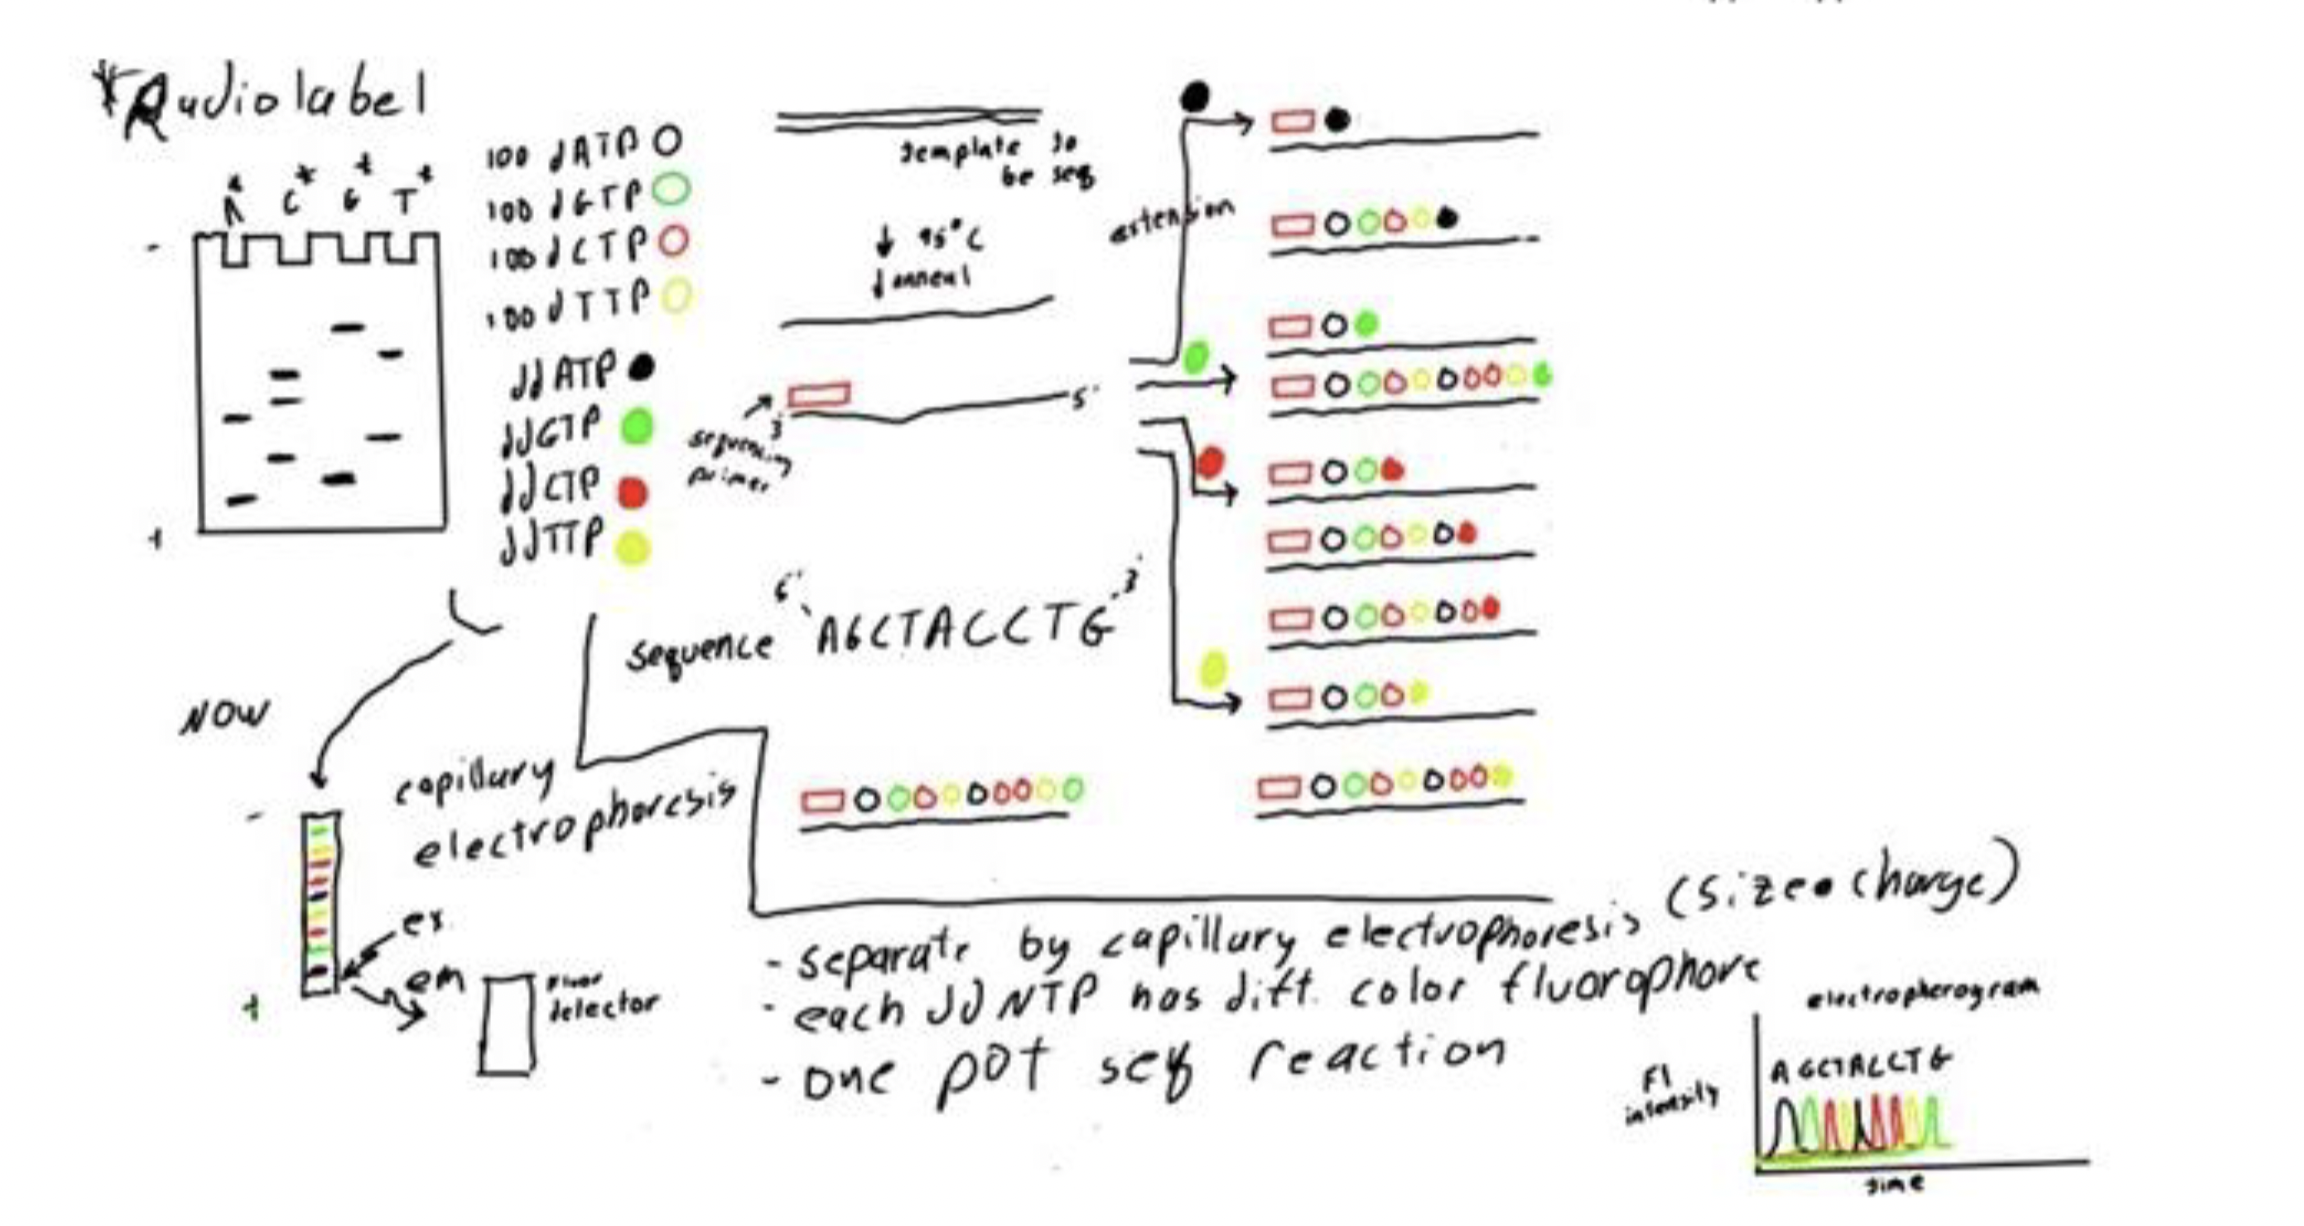 *Radiolabel
A* C* G* T*
-
+
100 dATP
100 dGTP
100 dCTP
100 dTTP
ddATP
ddGTP
ddCTP
ddTTP
template to
be seq
↓ 95°C
↓ anneal
3'
5'
sequencing
primer
extension
sequence 5' AGCTACCTG 3'
NOW
capillary
electrophoresis
-
+
ex
em
fluor
detector
- separate by capillary electrophoresis (size • charge)
- each ddNTP has diff. color fluorophore
- one pot seq reaction
electropherogram
Fl
intensity
AGCTACCTG
time